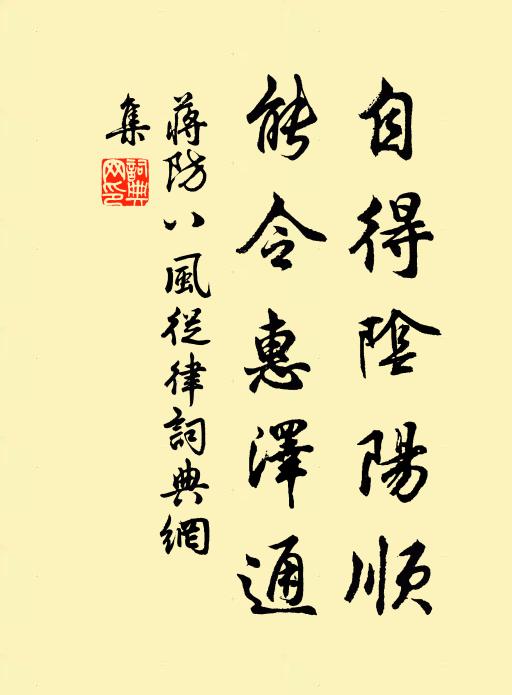 自得陰陽順
能令惠澤通
蔣防八風從律詞典網
集
詞典網印